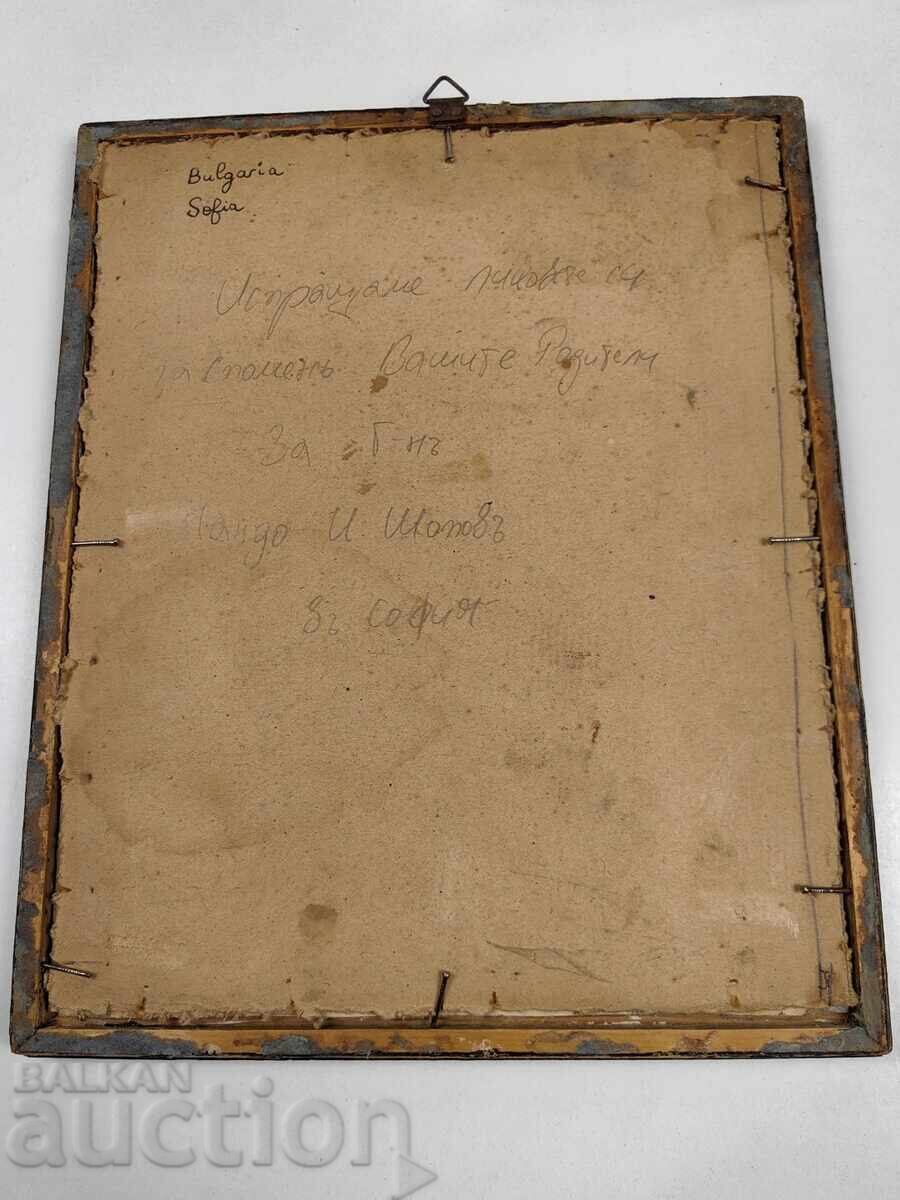 Bulgaria
Sofia
Испращаме ликовете си
за споменъ Вашите Родители
За Г-нъ
И Шоповъ
въ София
BALKAN
auction